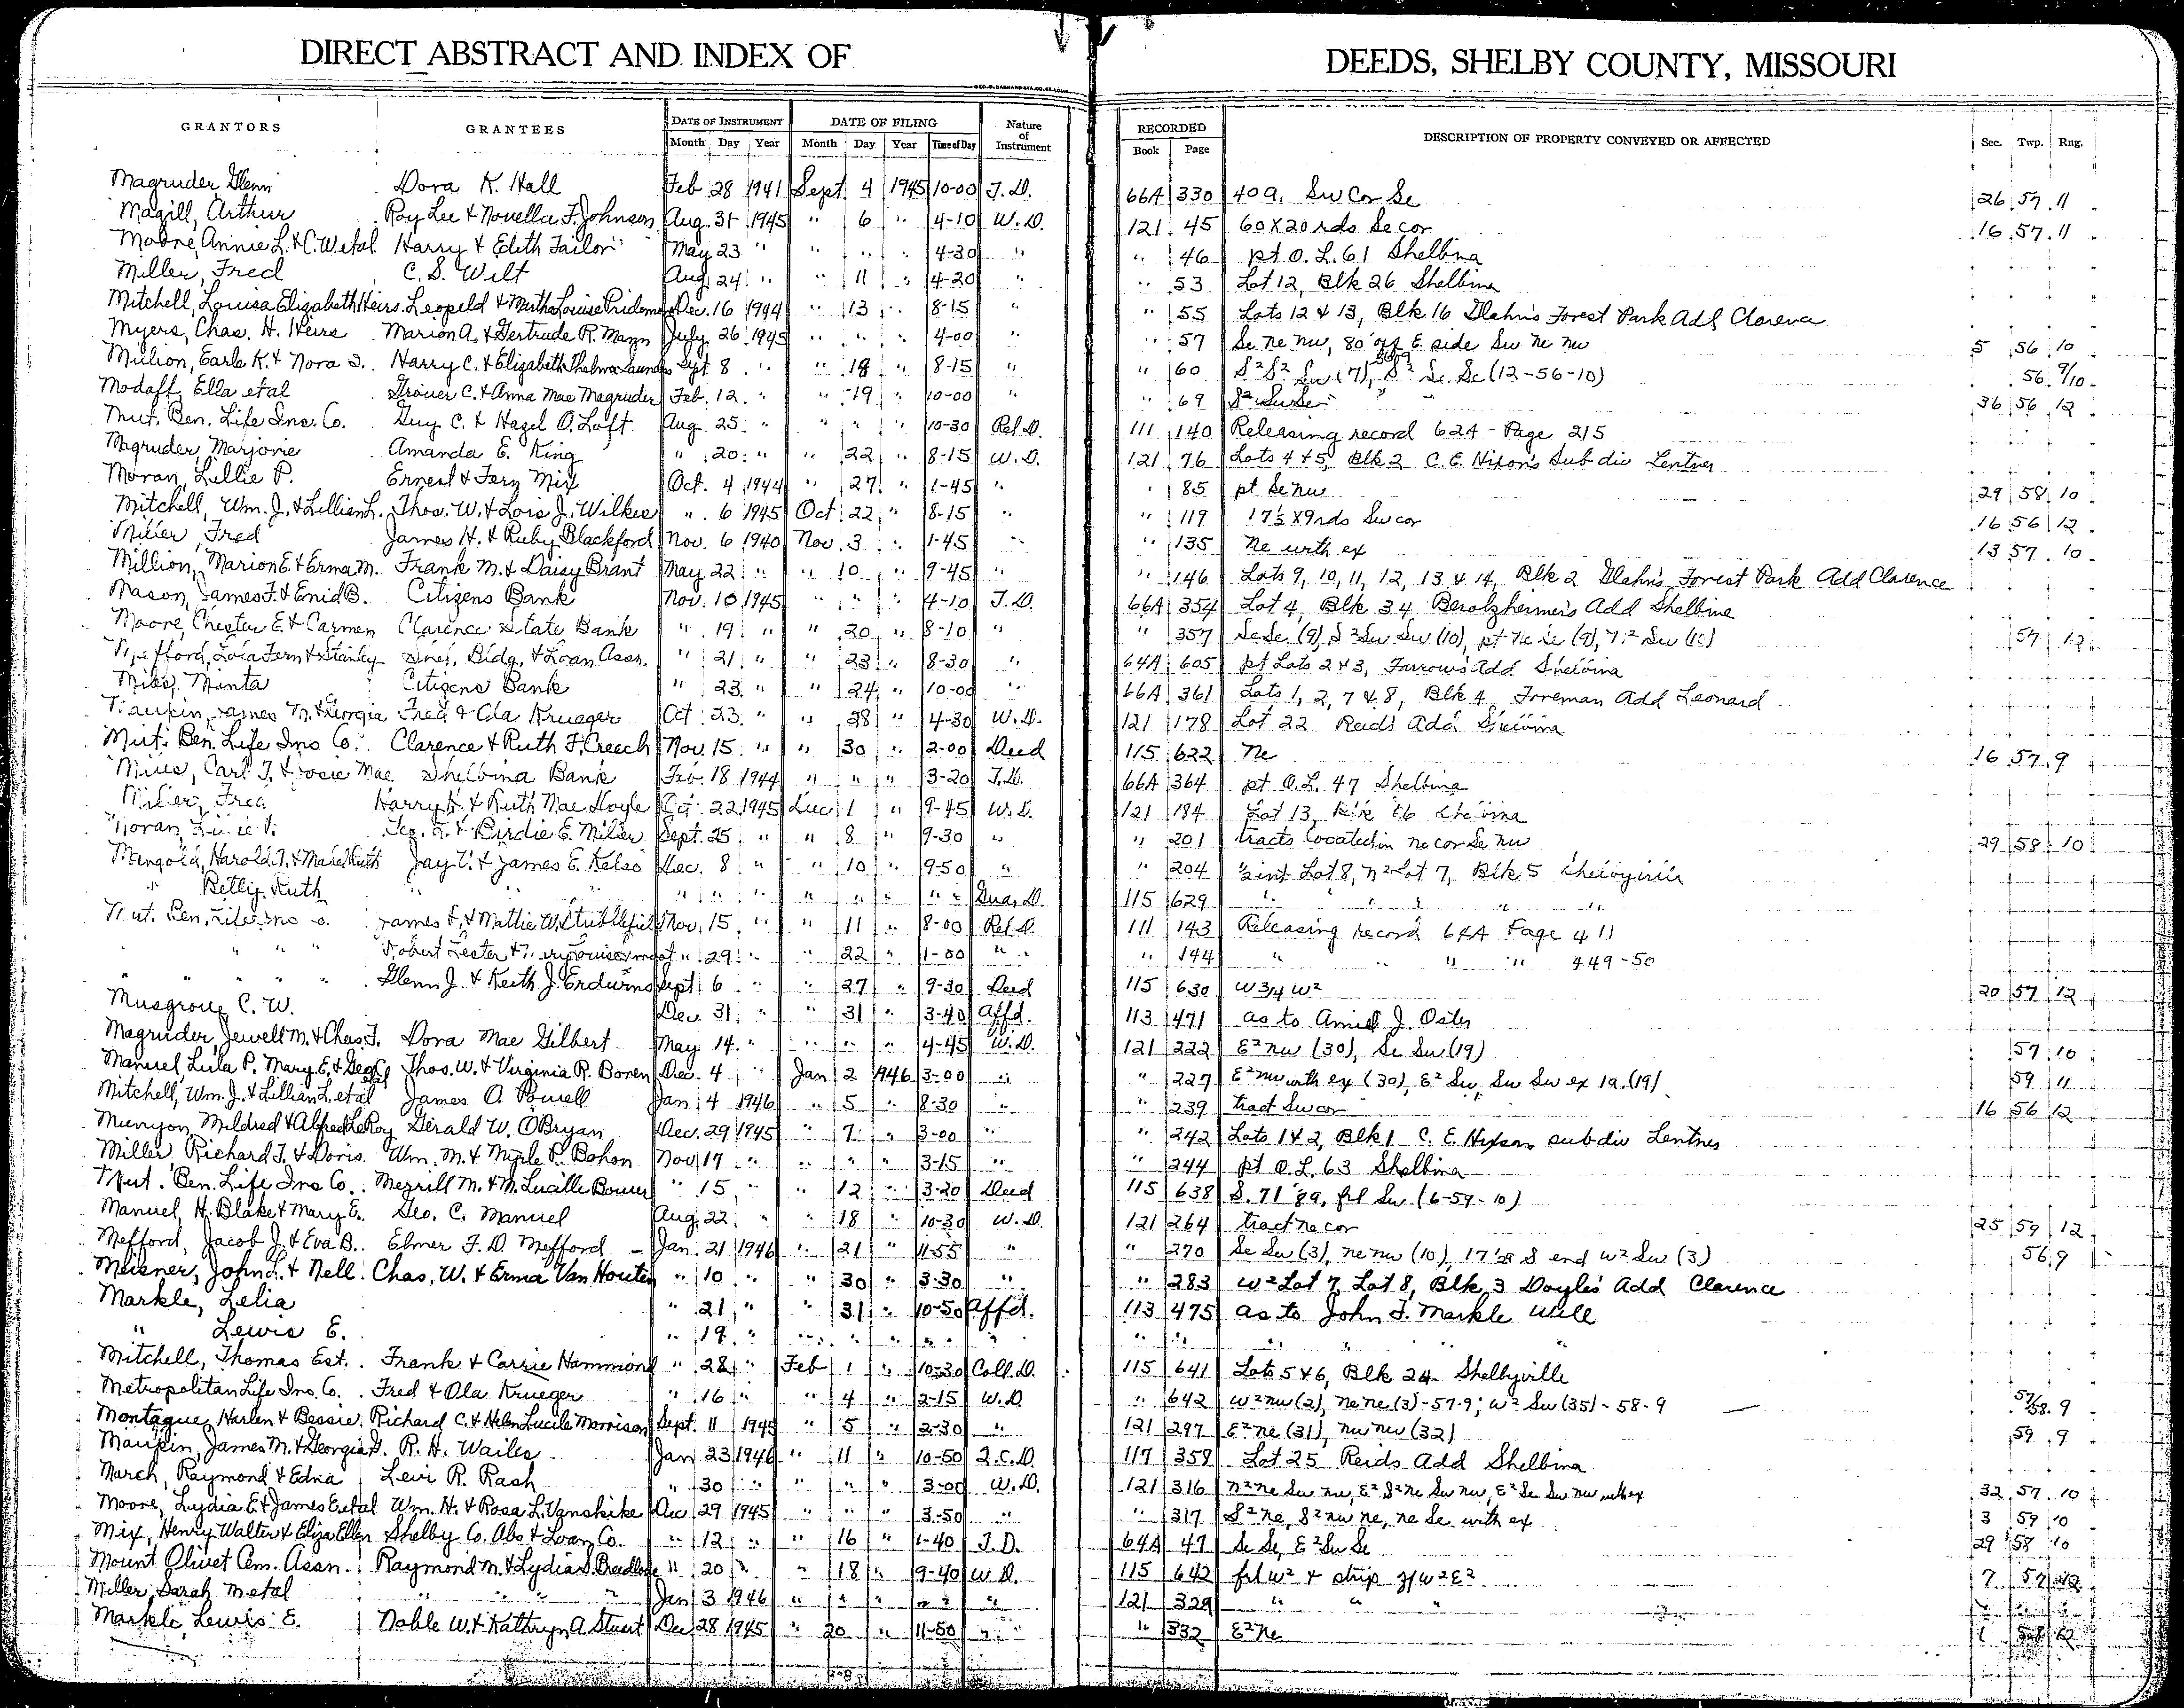 DIRECT ABSTRACT AND INDEX OF DEEDS, SHELBY COUNTY, MISSOURI
GRANTORS GRANTEES DATE OF INSTRUMENT DATE OF FILING Nature of Instrument RECORDED DESCRIPTION OF PROPERTY CONVEYED OR AFFECTED Sec. Twp. Rng.
Month Day Year Month Day Year Time of Day Book Page
Magruder Glenn Dora K. Hall Feb 28 1941 Sept 4 1945 10-00 T.D. 66A 330 40a. Sw Cor Se 26 57 11
Magill, Arthur Roy Lee & Novella F. Johnson Aug. 31 1945 " 6 " 4-10 W.D. 121 45 60 X 20 rds Se cor 16 57 11
Moore, Annie L. & C.W. etal Harry & Edith Tailor May 23 " " " " 4-30 " " 46 pt O.L. 61 Shelbina
Miller, Fred C. S. Wilt Aug 24 " " 11 " 4-20 " " 53 Lot 12, Blk 26 Shelbina
Mitchell, Louisa Elizabeth Heirs. Leopeld & Martha Louise Pridemore Dec. 16 1944 " 13 " 8-15 " " 55 Lots 12 & 13, Blk 16 Forest Park Add Clarence
Myers, Chas. H. Heirs Marion A. & Gertrude R. Mann July 26 1945 " " " 4-00 " " 57 Se Ne Nw, 80' off E side Sw Ne Nw 5 56 10
Million, Earle K. & Nora Harry C. & Elizabeth Thelma Saunders Sept. 8 " " 18 " 8-15 " " 60 S² S² Sw (7), S² Se Se (12-56-10) 56 9/10
Modaff, Ella etal Grover C. & Anna Mae Magruder Feb. 12 " " 19 " 10-00 " " 69 S² Sw Se 36 56 12
Mut. Ben. Life Ins. Co. Guy C. & Hazel O. Loft Aug. 25 " " " " 10-30 Rel D. 111 140 Releasing record 62A - Page 215
Magruder, Marjorie Amanda E. King " 20 " " 22 " 8-15 W.D. 121 76 Lots 4 & 5, Blk 2 C. E. Hixon's Sub div Lentner
Moran, Lillie P. Ernest & Fern Mix Oct. 4 1944 " 27 " 1-45 " " 85 pt Se Nw 29 58 10
Mitchell, Wm. J. & Lillian L. Thos. W. & Lois J. Wilkes " 6 1945 Oct 22 " 8-15 " " 119 17½ X 9 rds Sw cor 16 56 12
Miller, Fred James H. & Ruby Blackford Nov. 6 1940 Nov. 3 " 1-45 " " 135 Ne with ex 13 57 10
Million, Marion E. & Erma M. Frank M. & Daisy Brant May 22 " " 10 " 9-45 " " 146 Lots 9, 10, 11, 12, 13 & 14, Blk 2 Forest Park Add Clarence
Mason, James F. & Enid B. Citizens Bank Nov. 10 1945 " " " 4-10 T.D. 66A 354 Lot 4, Blk 34 Add Shelbina
Moore, Chester E. & Carmen Clarence State Bank " 19 " " 20 " 8-10 " " 357 Se Se (9), S² Sw Sw (10), pt Ne Se (9), N² Sw (10) 57 12
Lola Fern & Stanley Bldg. & Loan Assn. " 21 " " 23 " 8-30 " 64A 605 pt Lots 2 & 3, Farrow's Add Shelbina
Miles, Minta Citizens Bank " 23 " " 24 " 10-00 " 66A 361 Lots 1, 2, 7 & 8, Blk 4 Foreman Add Leonard
Maupin, James M. & Georgia Fred & Ola Krueger Oct 23 " " 28 " 4-30 W.D. 121 178 Lot 22 Reids Add Shelbina
Mut. Ben. Life Ins Co. Clarence & Ruth F. Creech Nov. 15 " " 30 " 2-00 Deed 115 622 Ne 16 57 9
Carl T. & Josie Mae Shelbina Bank Feb. 18 1944 " " " 3-20 T.D. 66A 364 pt O.L. 47 Shelbina
Miller, Fred Harry H. & Ruth Mae Doyle Oct. 22 1945 Dec 1 " 9-45 W.D. 121 184 Lot 13, Blk Shelbina
Moran, Lillie P. Geo. & Birdie E. Miller Sept. 25 " " 8 " 9-30 " " 201 tracts located in Ne cor Se Nw 29 58 10
Mangold, Harold & Mabel Ruth Jay V. & James E. Kelso Dec. 8 " " 10 " 9-50 " " 204 int Lot 8, N² Lot 7, Blk 5 Shelbyville
" Betty Ruth " " " " " " " " " Guar. D. 115 629 " " " " "
Mut. Ben. Life Ins Co. James F. & Mattie W. Stubblefield Nov. 15 " " 11 " 8-00 Rel D. 111 143 Releasing record 64A Page 411
" " " Robert Lester & Louise " 29 " " 22 " 1-00 " " 144 " " " " 449-50
" " " " Glenn J. & Keith J. Erdwins Sept 6 " " 27 " 9-30 Deed 115 630 W 3/4 W² 20 57 12
Musgrove C. W. Dec. 31 " " 31 " 3-40 Affd. 113 471 as to Amiel J. Oster
Magruder, Jewell M. & Chas F. Dora Mae Gilbert May 14 " " " " 4-45 W.D. 121 222 E² Nw (30), Se Sw (19) 57 10
Manuel, Lula P. Mary E. & Geo C etal Thos. W. & Virginia R. Boren Dec. 4 " Jan 2 1946 3-00 " " 227 E² Nw with ex (30), E² Sw, Sw Sw ex 1a. (19) 59 11
Mitchell, Wm. J. & Lillian L. etal James O. Powell Jan 4 1946 " 5 " 8-30 " " 239 tract Sw cor 16 56 12
Munyon, Mildred & Alfred LeRoy Gerald W. O'Bryan Dec. 29 1945 " 7 " 3-00 " " 242 Lots 1 & 2, Blk 1 C. E. Hixson sub div Lentner
Miller, Richard T. & Doris Wm. M. & Myrle P. Bohon Nov 17 " " " " 3-15 " " 244 pt O.L. 63 Shelbina
Mut. Ben. Life Ins Co. Merrill M. & M. Lucille Bower " 15 " " 12 " 3-20 Deed 115 638 S. 71 a, frl Sw (6-59-10)
Manuel, H. Blake & Mary E. Geo. C. Manuel Aug. 22 " " 18 " 10-30 W.D. 121 264 tract Ne cor 25 59 12
Mefford, Jacob J. & Eva B. Elmer F. D. Mefford Jan. 21 1946 " 21 " 11-55 " " 270 Se Sw (3), Ne Nw (10), 17 a S end W² Sw (3) 56 9
Meisner, John L. & Nell Chas. W. & Erma Van Houten " 10 " " 30 " 3-30 " " 283 W² Lot 7, Lot 8, Blk 3 Doyle's Add Clarence
Markle, Lelia " 21 " " 31 " 10-50 Affd. 113 475 as to John F. Markle Will
" Lewis E. " 19 " " " " " " " " " " "
Mitchell, Thomas Est. Frank & Carrie Hammond " 28 " Feb 1 " 10-30 Coll. D. 115 641 Lots 5 & 6, Blk 24 Shelbyville
Metropolitan Life Ins. Co. Fred & Ola Krueger " 16 " " 4 " 2-15 W.D. " 642 W² Nw (2), Ne Ne (3)-57-9; W² Sw (35)-58-9 57/58 9
Montague, Harlen & Bessie Richard C. & Helen Lucile Morrison Sept. 11 1945 " 5 " 2-30 " 121 297 E² Ne (31), Nw Nw (32) 59 9
Maupin, James M. & Georgia G. R. H. Wailes Jan 23 1946 " 11 " 10-50 Q.C.D. 117 358 Lot 25 Reids Add Shelbina
March, Raymond & Edna Levi R. Rash " 30 " " " " 3-00 W.D. 121 316 N² Ne Sw Nw, E² S² Ne Sw Nw, E² Se Sw Nw with ex 32 57 10
Moore, Lydia E. & James E etal Wm. H. & Rosa L. Vanskike Dec 29 1945 " " " 3-50 " " 317 S² Ne, S² Nw Ne, Ne Se with ex 3 59 10
Mix, Henry Walter & Eliza Ellen Shelby Co. Abs & Loan Co. " 12 " " 16 " 1-40 T.D. 64A 47 Se Se, E² Sw Se 29 58 10
Mount Olivet Cem. Assn. Raymond M. & Lydia S. " 20 " " 18 " 9-40 W.D. 115 642 frl W² & strip W² E² 7 57
Miller, Sarah M etal " " " " Jan 3 1946 " " " " " 121 329 " " "
Markle, Lewis E. Noble W. & Kathryn A Stuart Dec 28 1945 " 20 " 11-50 " " 332 E² Ne 1